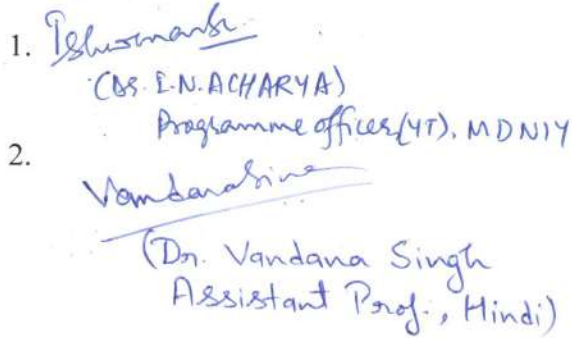 1. Ishwornarsr
(Dr. I.N. ACHARYA)
Programme officer (YT), MDNIY
2.
Vandanasine
(Dr. Vandana Singh
Assistant Prof., Hindi)